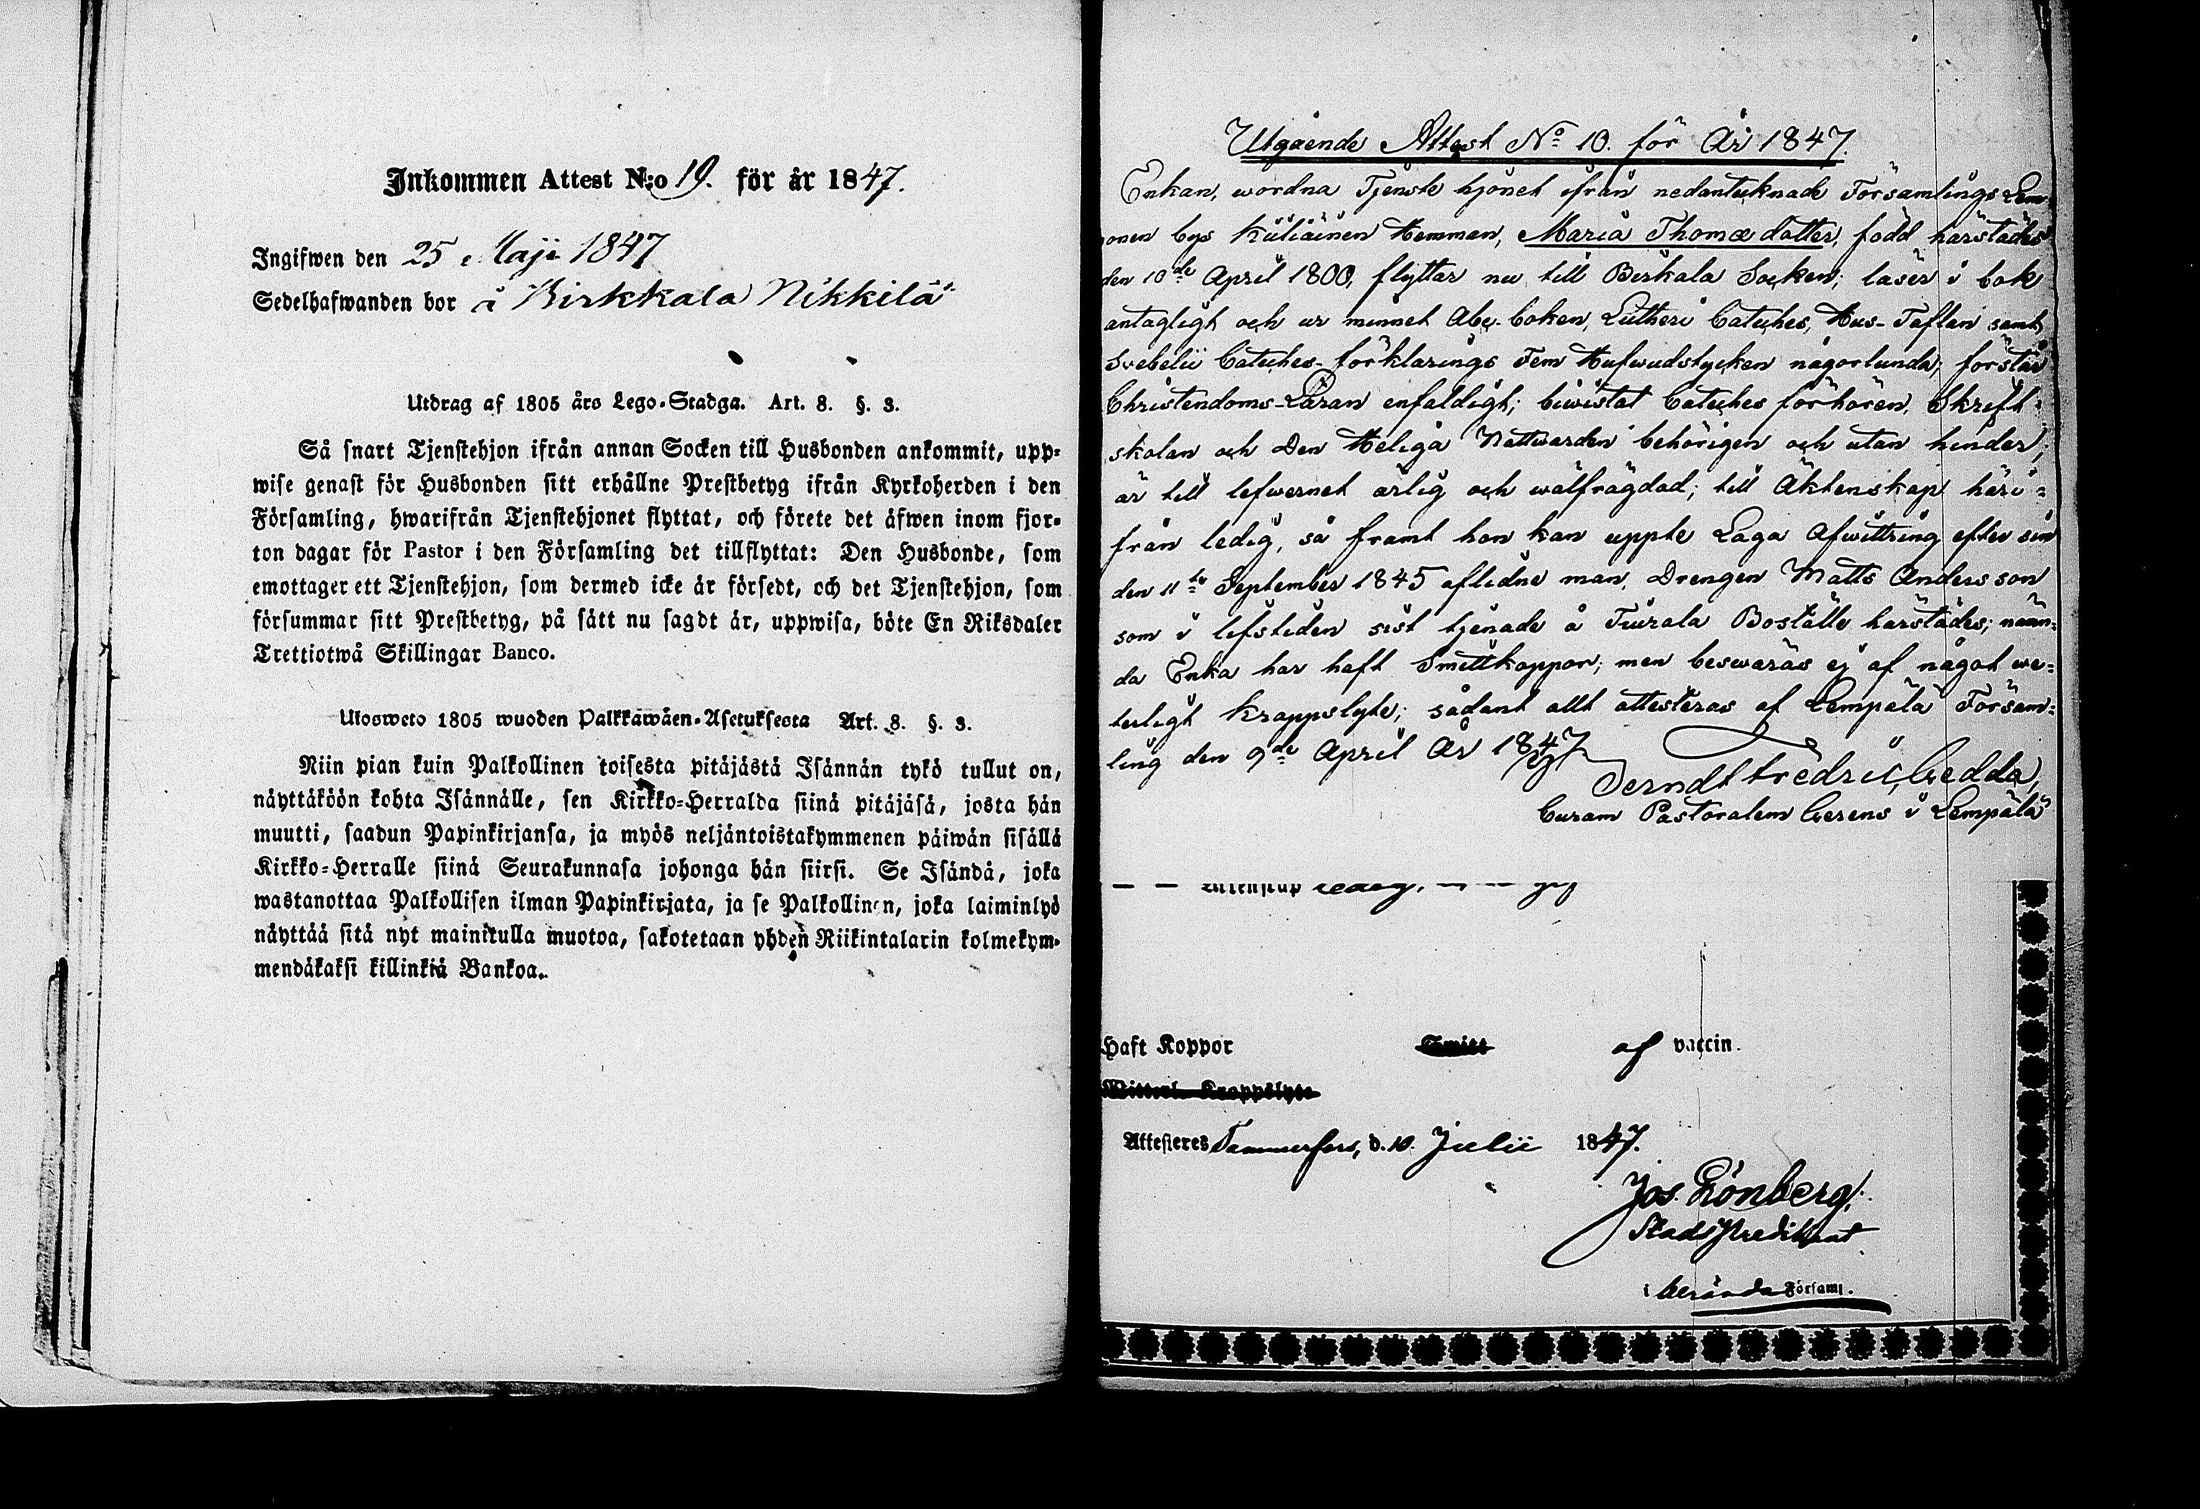 Inkommen Attest N:o 19. för år 1847.
Ingifwen den 25 Maji 1847
Sedelhafwanden bor å Birkkala Nikkilä
Utdrag af 1805 års Lego-Stadga. Art. 8. §. 3.
Så snart Tjenstehjon ifrån annan Socken till Husbonden ankommit, upp=
wise genast för Husbonden sitt erhållne Prestbetyg ifrån Kyrkoherden i den
Församling, hwarifrån Tjenstehjonet flyttat, och förete det äfwen inom fjor=
ton dagar för Pastor i den Församling det tillflyttat: Den Husbonde, som
emottager ett Tjenstehjon, som dermed icke är försedt, och det Tjenstehjon, som
försummar sitt Prestbetyg, på sätt nu sagdt är, uppwisa, böte En Riksdaler
Trettiotwå Skillingar Banco.
Ulosweto 1805 wuoden Palkkawäen-Asetuksesta Art. 8. §. 3.
Niin pian kuin Palkollinen toisesta pitäjästä Isännän tykö tullut on,
näyttäköön kohta Isännälle, sen Kirkko=Herralda siinä pitäjäsä, josta hän
muutti, saadun Papinkirjansa, ja myös neljäntoistakymmenen päiwän sisällä
Kirkko=Herralle siinä Seurakunnasa johonga hän siirsi. Se Isändä, joka
wastanottaa Palkollisen ilman Papinkirjata, ja se Palkollinen, joka laiminlyö
näyttää sitä nyt mainitulla muotoa, sakotetaan yhden Riikintalarin kolmekym=
mendäkaksi killinkiä Bankoa.
Utgående Attest No 10. för År 1847.
Enkan, wordna Tjenste hjonet ifrån nedantecknade Församlings Lem=
onen bys Kuliainen Hemman, Maria Thomæ dotter, född härstädes
den 10de April 1800, flyttar nu till Birkala Socken; läser i bok
antagligt och ur minnet Abc-boken, Lutheri Cateches, Hus-Taflan samt
Svebelii Cateches-förklarings Fem Hufwudstycken någorlunda; förstår
Christendoms-Läran enfaldigt; biwistat Cateches förhören, Skrift=
skolan och Den Heliga Nattwarden behörigen och utan hinder;
är till lefwernet ärlig och wälfrägdad; till Äktenskap häri=
från ledig, så framt hon kan uppte Laga Afwittring efter sin
den 11te September 1845 aflidne man, Drengen Matts Andersson
som i lifstiden sist tjenade å Tiurala Boställe härstädes; nämn=
da Enka har haft Smittkoppor; men beswäras ej af något we=
terligt krappslyte; sådant allt attesteras af Lempälä Försam=
ling den 9de April År 1847
Berndt Fredric Gedda,
Curam Pastoralem Gerens i Lempälä
— — Äktenskap ledig, — —
Haft Koppor Smitt af vaccin.
Witterl. Krappslyte
Attesteres Tammerfors, d. 10. Julii 1847.
Jos. Grönberg,
Stads Predikant
i berörda Församl.